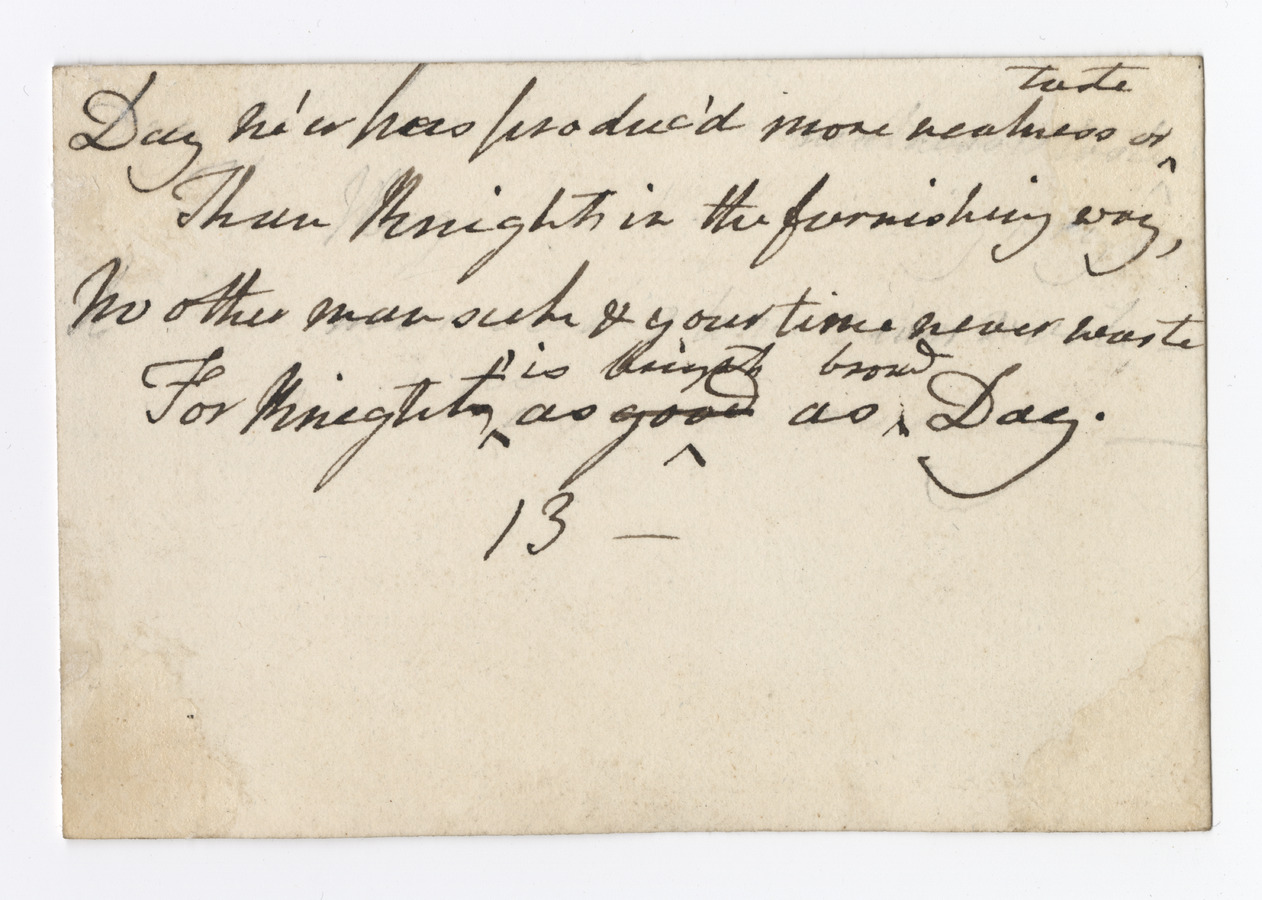 taste
Day ne'er has produc'd more neatness or
Than Knight's in the furnishing way,
No other man seek & your time never waste
is bright broad
For Knight as good as Day.
13 —